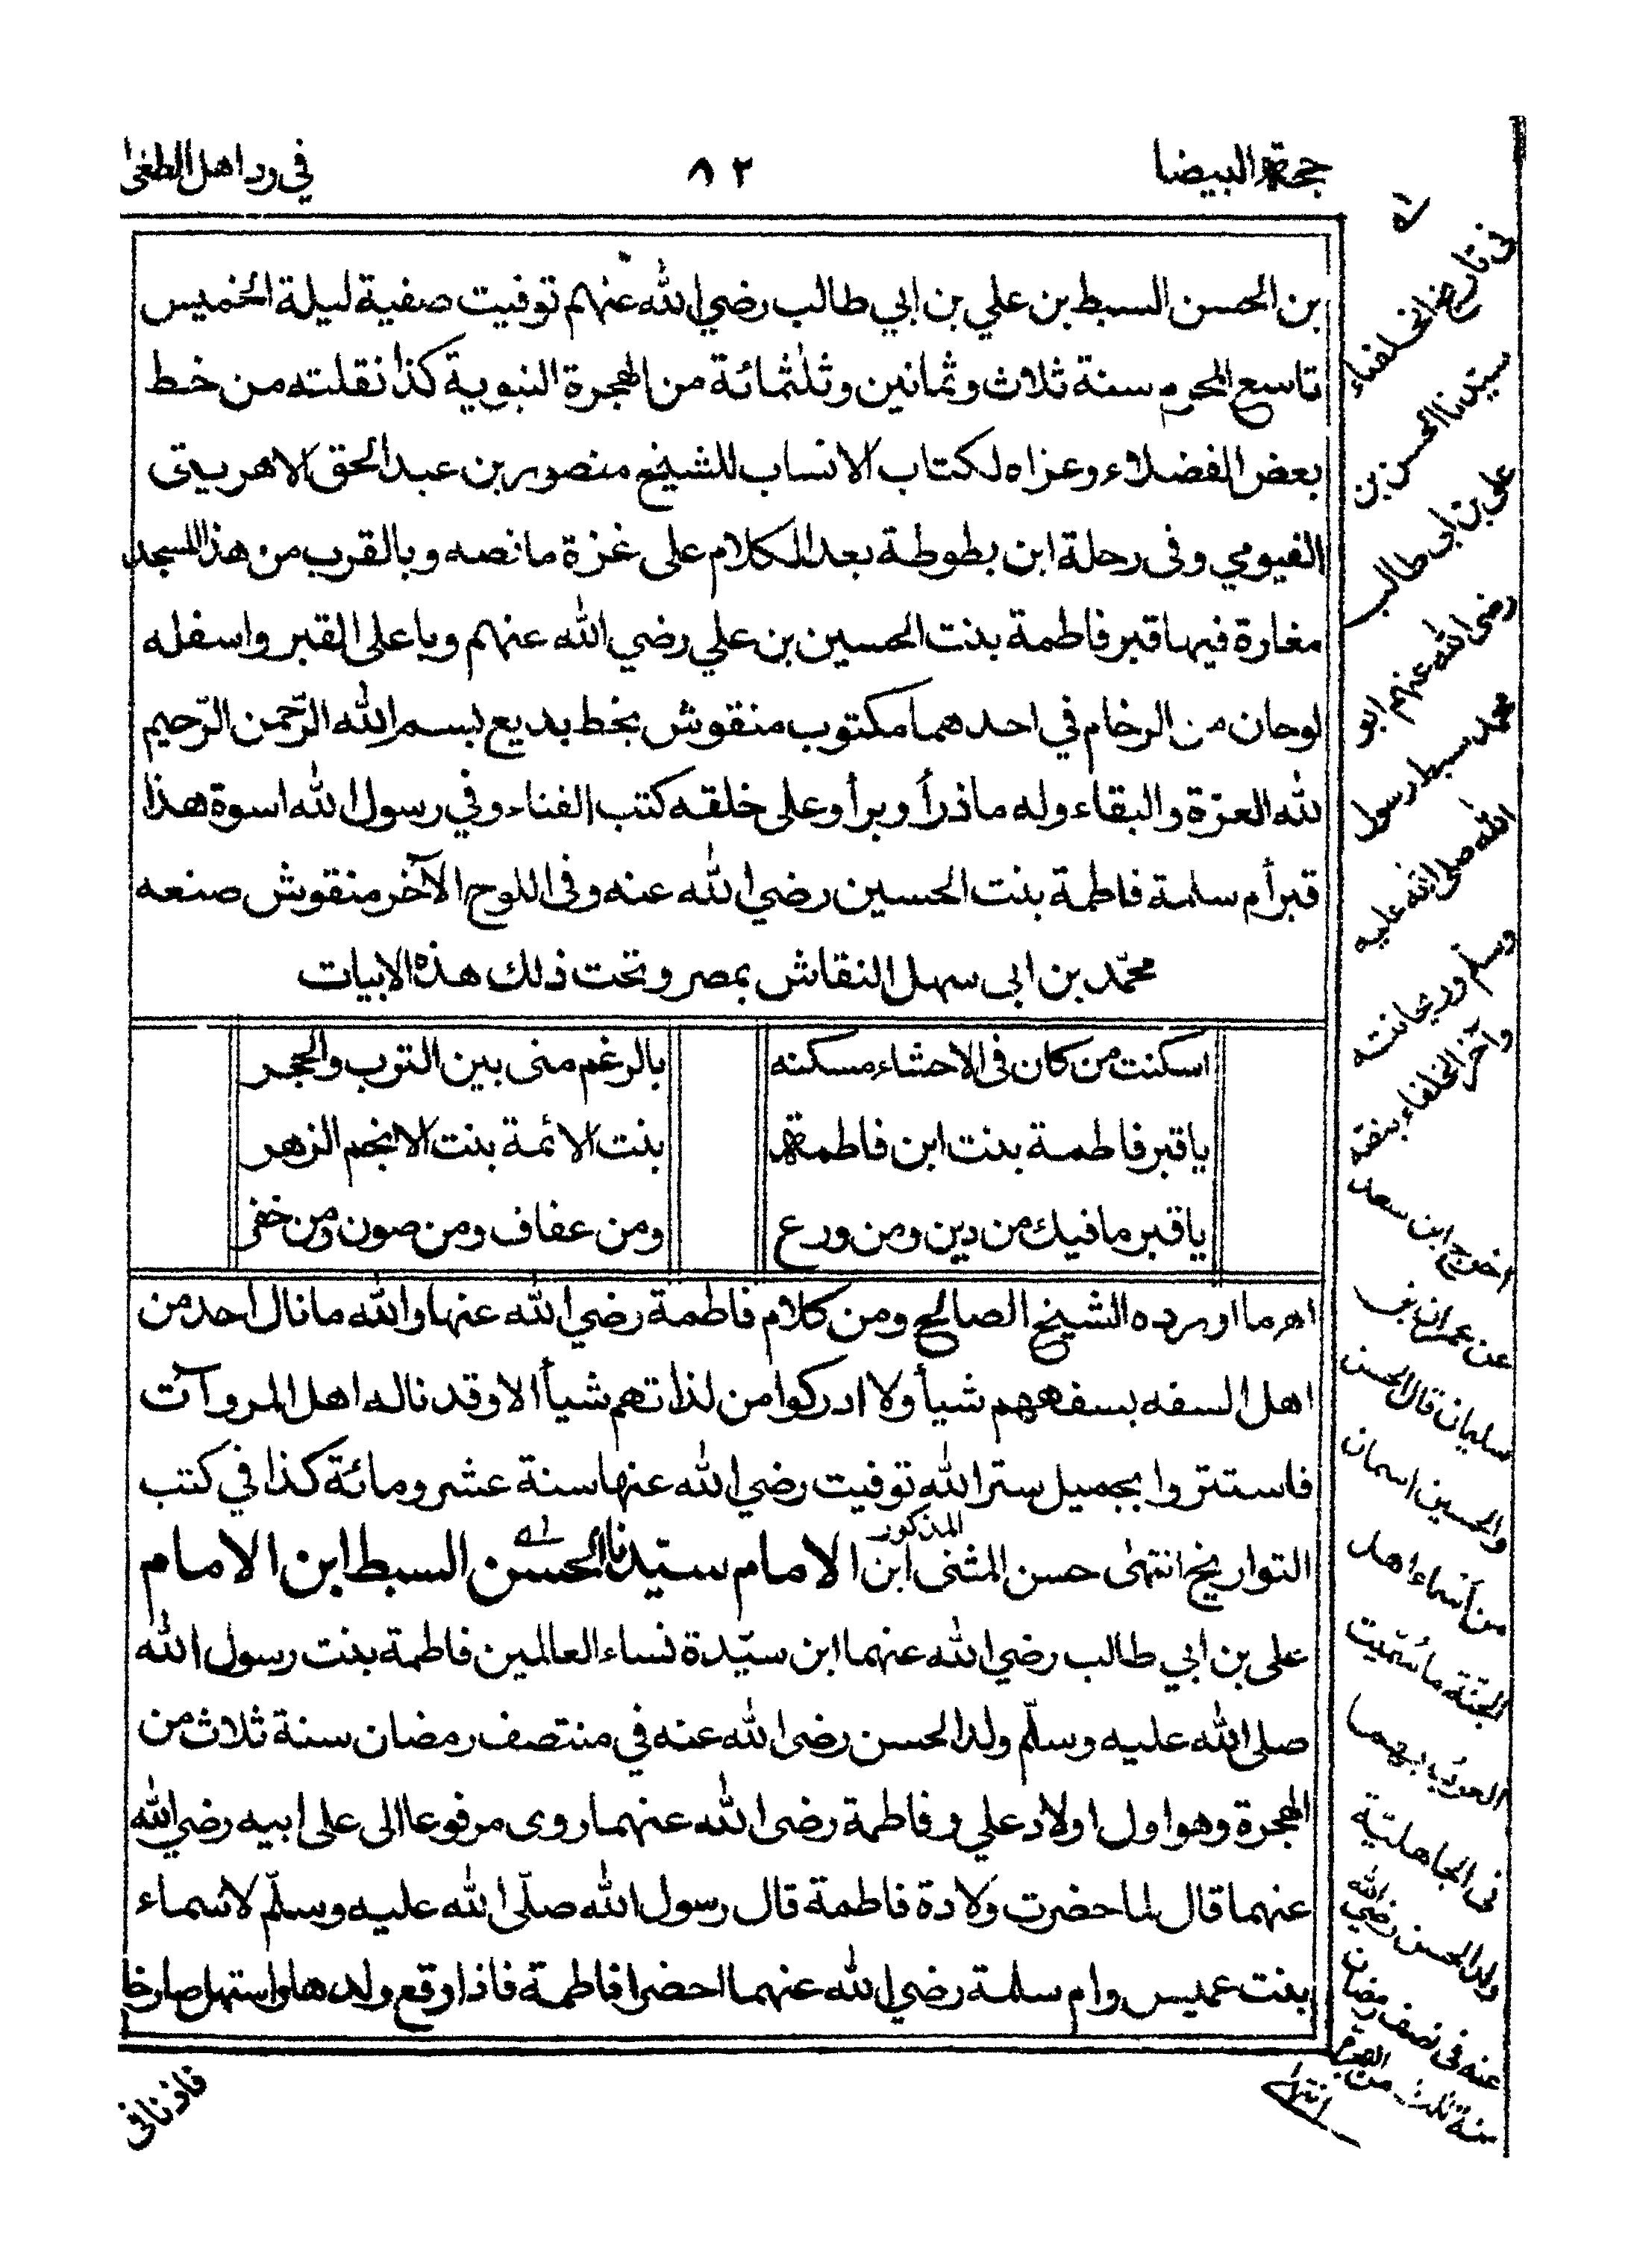 حجة البيضا
٨٢
في رد اهل الطغى
بن الحسن السبط بن علي بن ابي طالب رضي الله عنهم توفيت صفية ليلة الخميس
تاسع المحرم سنة ثلاث وثمانين وثلثمائة من الهجرة النبوية كذا نقلته من خط
بعض الفضلاء وعزاه لكتاب الانساب للشيخ منصور بن عبد الحق الاهريتى
الفيومي وفى رحلة ابن بطوطة بعد الكلام على غزة ما نصه وبالقرب من هذا المسجد
مغارة فيها قبر فاطمة بنت الحسين بن علي رضي الله عنهم وباعلى القبر واسفله
لوحان من الرخام في احدهما مكتوب منقوش بخط بديع بسم الله الرّحمن الرّحيم
لله العزّة والبقاء وله ماذرأ وبرأ وعلى خلقه كتب الفناء وفي رسول الله اسوة هذا
قبر أم سلمة فاطمة بنت الحسين رضي الله عنه وفى اللوح الآخر منقوش صنعه
محمّد بن ابى سهل النقاش بمصر وتحت ذلك هذه الابيات
اسكنت من كان فى الاحشاء مسكنه
بالرغم منى بين الترب والحجر
يا قبر فاطمة بنت ابن فاطمة
بنت الائمة بنت الانجم الزهر
يا قبر ما فيك من دين ومن ورع
ومن عفاف ومن صون ومن خفر
اهر ما اورده الشيخ الصالح ومن كلام فاطمة رضي الله عنها والله ما نال احد من
اهل السفه بسفههم شيأ ولا ادركوا من لذاتهم شيأ الا وقد ناله اهل المروآت
فاستتروا بجميل ستر الله توفيت رضي الله عنها سنة عشر ومائة كذا في كتب
التواريخ انتهى حسن المثنى المذكور ابن الامام سيّدنا الحسن السبط ابن الامام
على بن ابي طالب رضي الله عنهما ابن سيّدة نساء العالمين فاطمة بنت رسول الله
صلى الله عليه وسلّم ولد الحسن رضى الله عنه في منتصف رمضان سنة ثلاث من
الهجرة وهو اول اولاد علي و فاطمة رضى الله عنهما روى مرفوعا الى على ابيه رضي الله
عنهما قال لما حضرت ولادة فاطمة قال رسول الله صلّى الله عليه وسلّم لاسماء
بنت عميس وام سلمة رضي الله عنهما احضرا فاطمة فاذا وقع ولدها واستهل صارخا
فاذنا في
فى تاريخ الخلفاء
سيّدنا الحسن بن
على بن ابى طالب
رضى الله عنهم ابو
محمد سبط رسول
الله صلى الله عليه
وسلم وريحانته
وآخر الخلفاء بنصّه
اخرج ابن سعد
عن عمران بن
سليمان قال الحسن
والحسين اسمان
من اسماء اهل
الجنّة ما سُمّيت
العرب بهما
فى الجاهليّة
ولد الحسن رضي الله
عنه فى نصف رمضان
سنة ثلث من الهجرة
انتهى